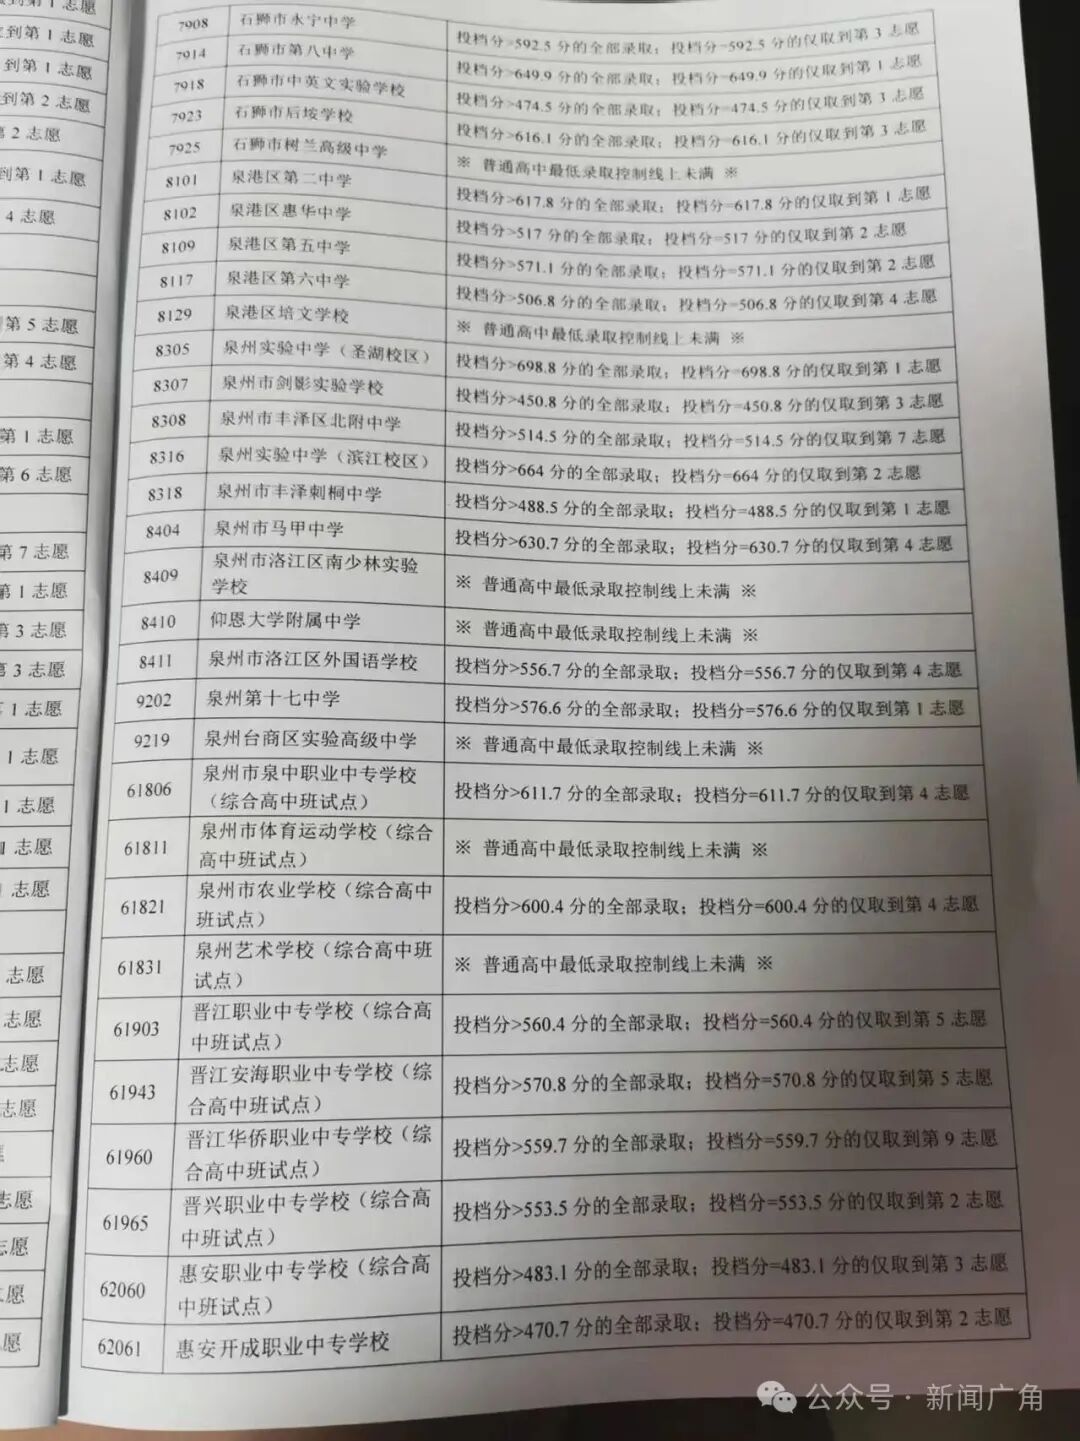 到第1志愿
到第1志愿
到第1志愿
到第2志愿
第2志愿
到第1志愿
4志愿
第5志愿
第4志愿
第1志愿
第6志愿
第7志愿
第1志愿
第3志愿
第3志愿
1志愿
1志愿
1志愿
志愿
志愿
志愿
志愿
志愿
志愿
志愿
志愿
愿
愿
7908 石狮市永宁中学 投档分>592.5分的全部录取；投档分=592.5分的仅取到第3志愿
7914 石狮市第八中学 投档分>649.9分的全部录取；投档分=649.9分的仅取到第1志愿
7918 石狮市中英文实验学校 投档分>474.5分的全部录取；投档分=474.5分的仅取到第3志愿
7923 石狮市后垵学校 投档分>616.1分的全部录取；投档分=616.1分的仅取到第3志愿
7925 石狮市树兰高级中学 ※ 普通高中最低录取控制线上未满 ※
8101 泉港区第二中学 投档分>617.8分的全部录取；投档分=617.8分的仅取到第1志愿
8102 泉港区惠华中学 投档分>517分的全部录取；投档分=517分的仅取到第2志愿
8109 泉港区第五中学 投档分>571.1分的全部录取；投档分=571.1分的仅取到第2志愿
8117 泉港区第六中学 投档分>506.8分的全部录取；投档分=506.8分的仅取到第4志愿
8129 泉港区培文学校 ※ 普通高中最低录取控制线上未满 ※
8305 泉州实验中学（圣湖校区） 投档分>698.8分的全部录取；投档分=698.8分的仅取到第1志愿
8307 泉州市剑影实验学校 投档分>450.8分的全部录取；投档分=450.8分的仅取到第3志愿
8308 泉州市丰泽区北附中学 投档分>514.5分的全部录取；投档分=514.5分的仅取到第7志愿
8316 泉州实验中学（滨江校区） 投档分>664分的全部录取；投档分=664分的仅取到第2志愿
8318 泉州市丰泽刺桐中学 投档分>488.5分的全部录取；投档分=488.5分的仅取到第1志愿
8404 泉州市马甲中学 投档分>630.7分的全部录取；投档分=630.7分的仅取到第4志愿
泉州市洛江区南少林实验
8409 学校 ※ 普通高中最低录取控制线上未满 ※
8410 仰恩大学附属中学 ※ 普通高中最低录取控制线上未满 ※
8411 泉州市洛江区外国语学校 投档分>556.7分的全部录取；投档分=556.7分的仅取到第4志愿
9202 泉州第十七中学 投档分>576.6分的全部录取；投档分=576.6分的仅取到第1志愿
9219 泉州台商区实验高级中学 ※ 普通高中最低录取控制线上未满 ※
泉州市泉中职业中专学校
61806 （综合高中班试点） 投档分>611.7分的全部录取；投档分=611.7分的仅取到第4志愿
泉州市体育运动学校（综合
61811 高中班试点） ※ 普通高中最低录取控制线上未满 ※
泉州市农业学校（综合高中
61821 班试点） 投档分>600.4分的全部录取；投档分=600.4分的仅取到第4志愿
泉州艺术学校（综合高中班
61831 试点） ※ 普通高中最低录取控制线上未满 ※
晋江职业中专学校（综合高
61903 中班试点） 投档分>560.4分的全部录取；投档分=560.4分的仅取到第5志愿
晋江安海职业中专学校（综
61943 合高中班试点） 投档分>570.8分的全部录取；投档分=570.8分的仅取到第5志愿
晋江华侨职业中专学校（综
61960 合高中班试点） 投档分>559.7分的全部录取；投档分=559.7分的仅取到第9志愿
晋兴职业中专学校（综合高
61965 中班试点） 投档分>553.5分的全部录取；投档分=553.5分的仅取到第2志愿
惠安职业中专学校（综合高
62060 中班试点） 投档分>483.1分的全部录取；投档分=483.1分的仅取到第3志愿
62061 惠安开成职业中专学校 投档分>470.7分的全部录取；投档分=470.7分的仅取到第2志愿
公众号·新闻广角